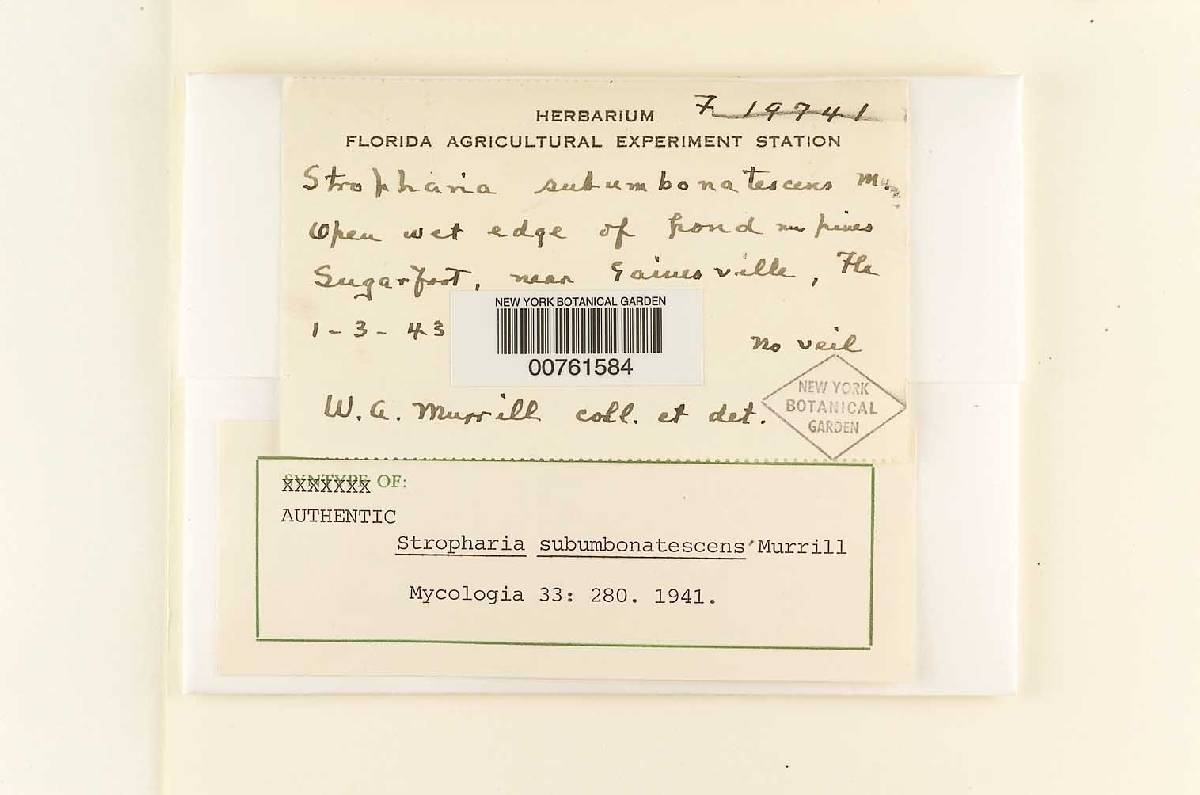 HERBARIUM F 19741
FLORIDA AGRICULTURAL EXPERIMENT STATION
Stropharia subumbonatescens Mur.
Open wet edge of pond nr pines
Sugarfoot, near Gainesville, Fla
1-3-43
NEW YORK BOTANICAL GARDEN
00761584
No veil
W. A. Murrill coll. et det.
NEW YORK
BOTANICAL
GARDEN
SYNTYPE OF:
AUTHENTIC
Stropharia subumbonatescens Murrill
Mycologia 33: 280. 1941.